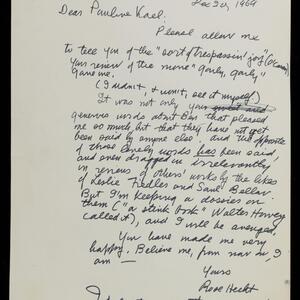 Dec 30, 1969
Dear Pauline Kael:
Please allow me
to tell you of the "sort of trespassin' joy"
your review of the movie "Gaily, Gaily"
gave me.
(I didn't, + won't, see it myself.)
It was not only your
generous words about Ben that pleased
me so much, but that they have not yet
been said by anyone else, and the opposite
of those lovely words has been said,
and even dragged in irrelevantly
in reviews of others' works by the likes
of Leslie Fiedler and Saul Bellow.
But I'm keeping a dossier on
them ("a stink book" Walter Howey
called it), and I will be avenged.
You have made me very
happy. Believe me, from now on, I
am —
Yours
Rose Hecht